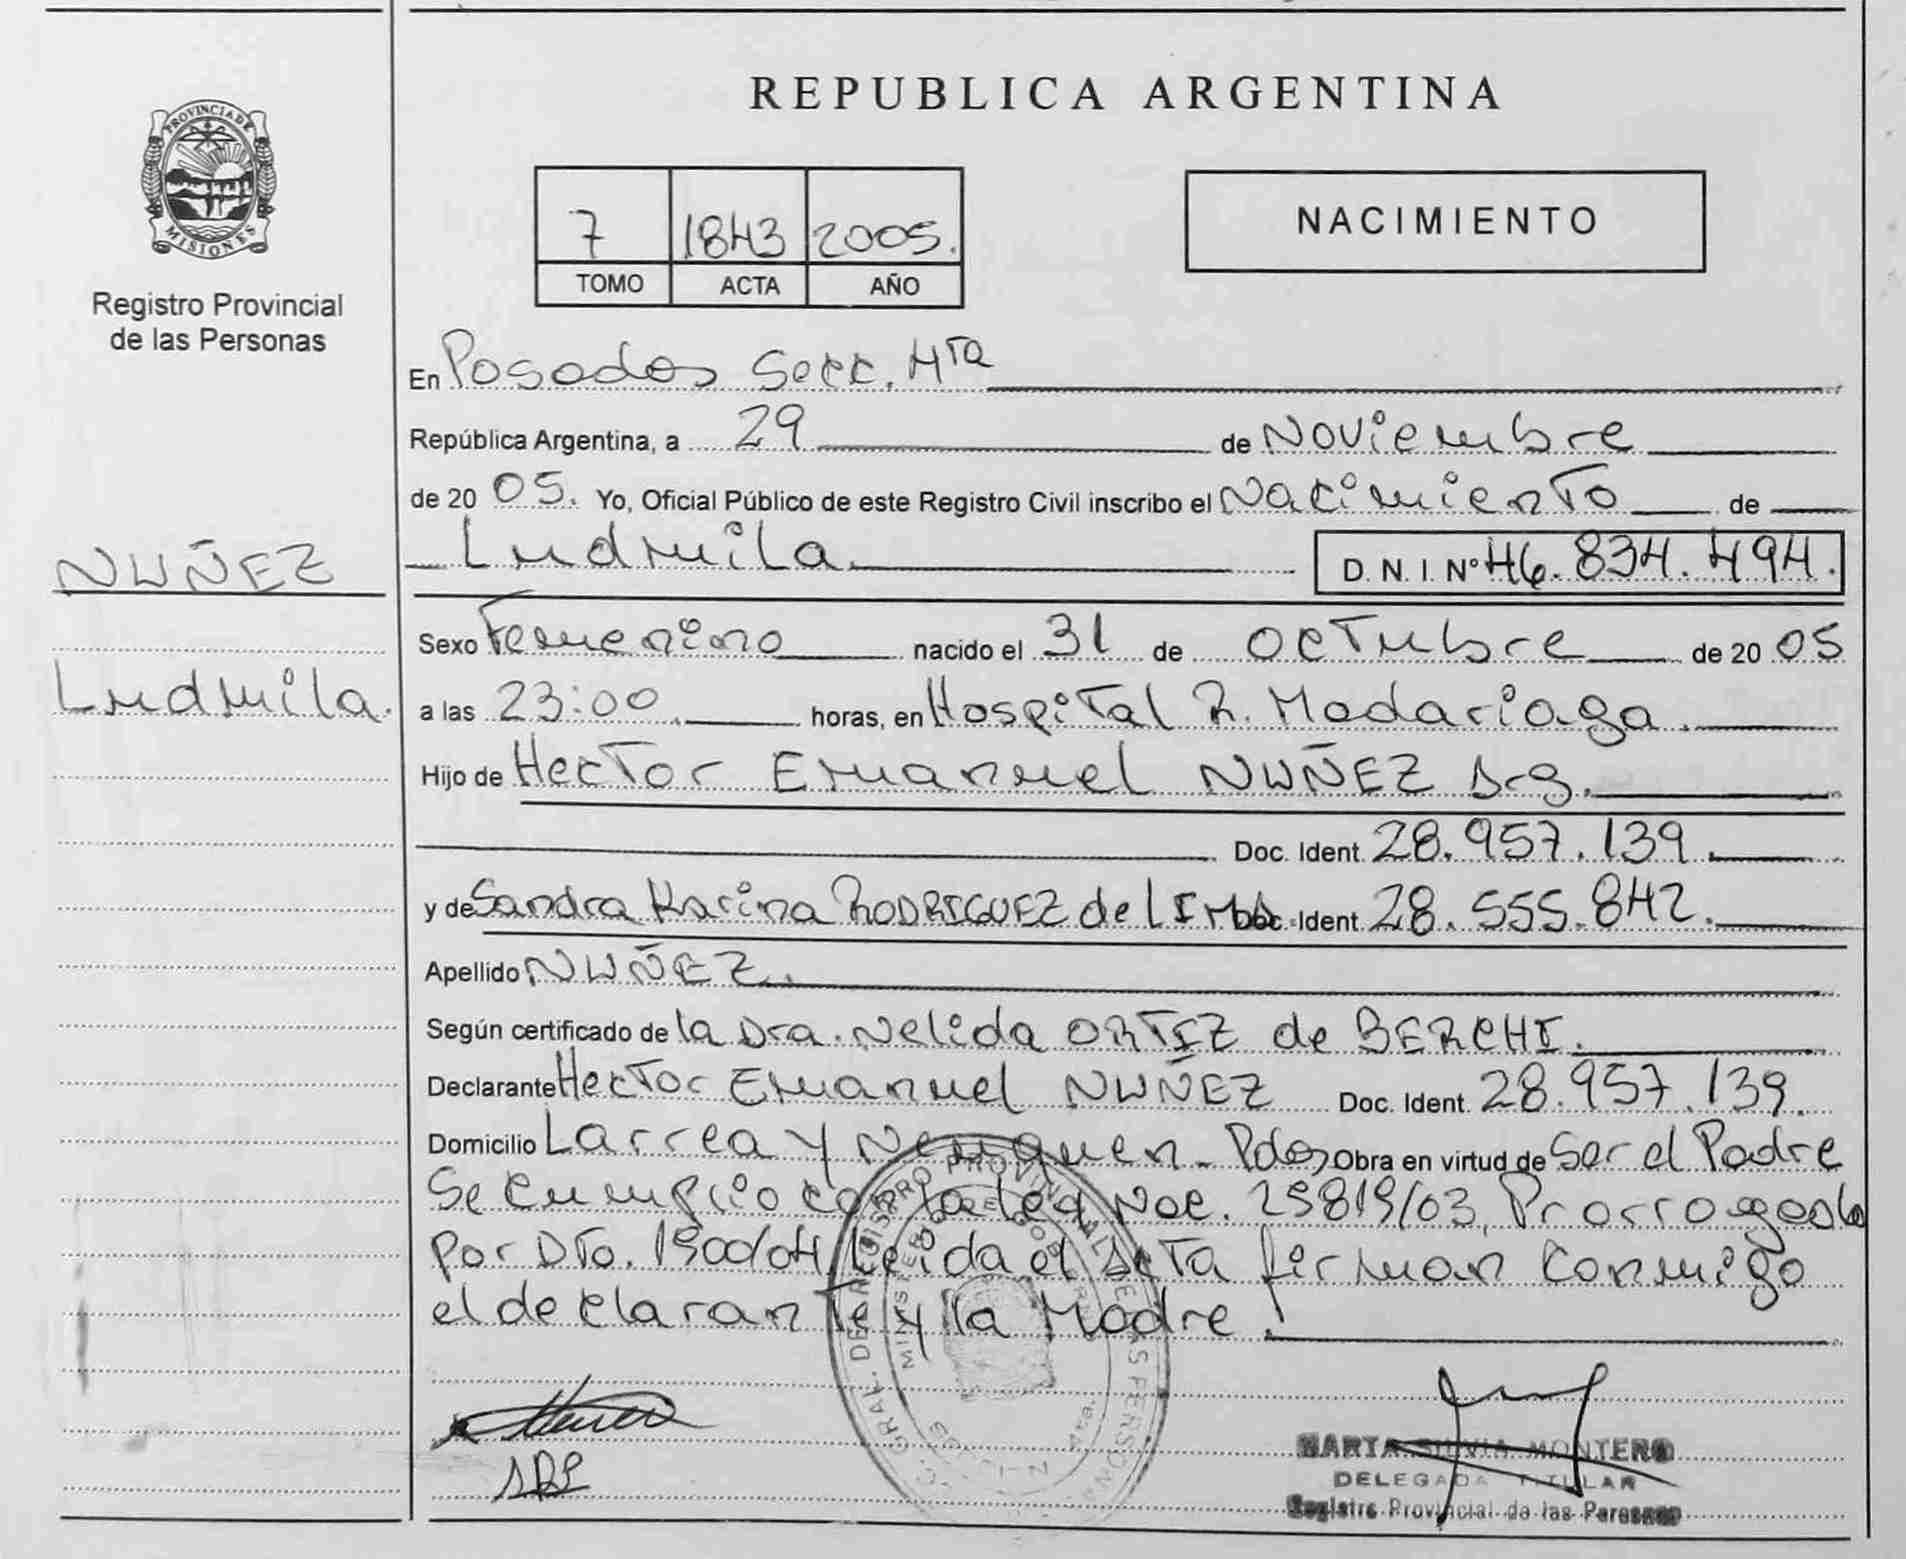 PROVINCIA DE
MISIONES
Registro Provincial
de las Personas
NUÑEZ
Ludmila.
REPUBLICA ARGENTINA
7 1843 2005.
TOMO ACTA AÑO
NACIMIENTO
En Posadas Secc. 4ta
República Argentina, a 29 de Noviembre
de 20 05. Yo, Oficial Público de este Registro Civil inscribo el Nacimiento de
Ludmila. D. N. I. Nº 46.834.494.
Sexo Femenino nacido el 31 de octubre de 20 05
a las 23:00. horas, en Hospital R. Madariaga.
Hijo de Hector Emanuel NUÑEZ Arg.
Doc. Ident. 28.957.139.
y de Sandra Karina RODRIGUEZ de LIMA Doc. Ident. 28.555.842.
Apellido NUÑEZ.
Según certificado de la Dra. Nelida ORTIZ de BERCHI.
Declarante Hector Emanuel NUÑEZ Doc. Ident. 28.957.139.
Domicilio Larrea y Neuquen. Pdas Obra en virtud de Ser el Padre
Se cumplio con la Ley Nac. 25819/03, Prorrogada
por Dto. 1900/04. Leida el Acta firman conmigo
el declarante y la Madre.
MARTA SILVIA MONTERO
DELEGADA TITULAR
Registro Provincial de las Personas